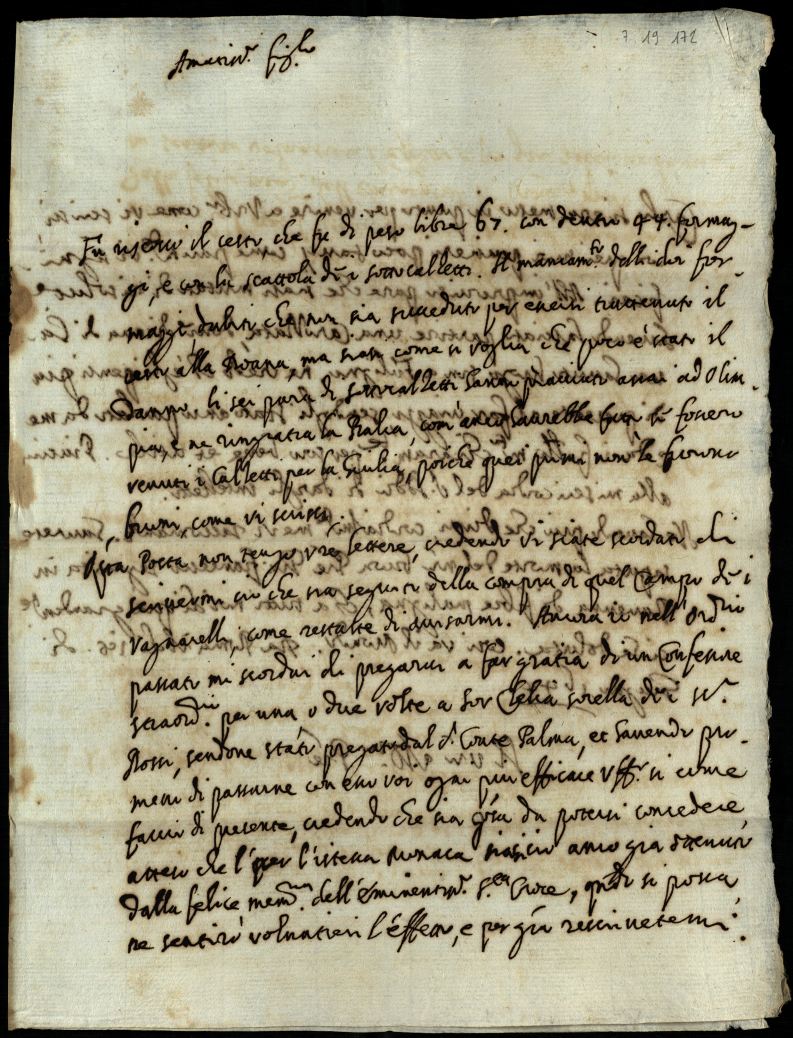 7 19 172
Amatiss.o figlo
Fu riservo il cesto che fu di peso libre 67. con dentro 44. formag-
gi, e con la scattola de i sottocalzetti. Il mancam.to delli doi for-
maggi, dubito che non sia succeduto per essersi trattenuto il
cesto alla Doana, ma siasi come si voglia che poco è stato il
Danno. li sei para di sottocalzetti sono piaciuti assai ad Olim-
pia, e ne ringratia la Thalia, com' anco haurebbe fatto se fossero
venuti i Calzetti per la Giulia, poiche quei primi non le furono
buoni, come vi scrissi.
Posta non tengo vre lettere, credendo vi siate scordati di
scrivermi ciò che sia seguito della compra di quel Campo de i
Vagnarelli, come restaste di avisarmi. Ancora io nell' Ord.rio
passato mi scordai di pregarvi a far gratia di un Confessore
straord.rio per una o due volte a Sor Clelia sorella de i ss.ri
Rossi, sendone stato pregato dal s.r Conte Palma, et havendo pro-
messo di passarne con esso voi ogni piu efficace uff.o si come
faccio di presente, credendo che sia cosa da potersi concedere
atteso che l' per l'istessa Monaca siasi ciò anco già ottenuto
dalla felice mem.ria dell' Eminentiss.o S.ta Croce, q.ndo si possa
ne sentirò volentieri l'effetto, e per gra rescrivetemi.